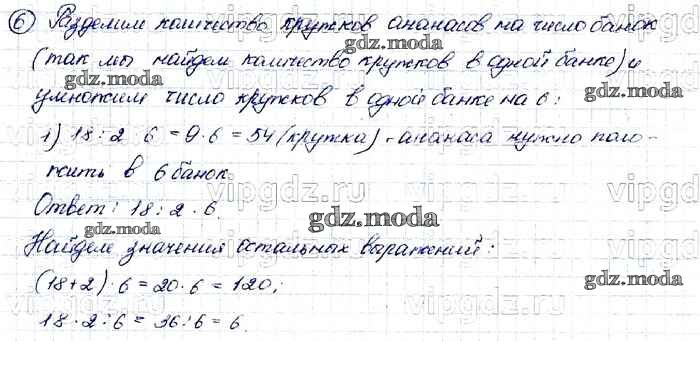 6 Разделим количество кружков ананасов на число банок
(так мы найдем количество кружков в одной банке) и
умножим число кружков в одной банке на 6:
1) 18:2·6 = 9·6 = 54 (кружка) - ананаса нужно поло-
жить в 6 банок.
Ответ: 18:2·6.
Найдем значения остальных выражений:
(18+2)·6 = 20·6 = 120;
18·2:6 = 36:6 = 6.
gdz.moda
gdz.moda
gdz.moda
gdz.moda
gdz.moda
gdz.moda
gdz.moda
gdz.moda
vipgdz.ru
vipgdz.ru
vipgdz.ru
vipgdz.ru